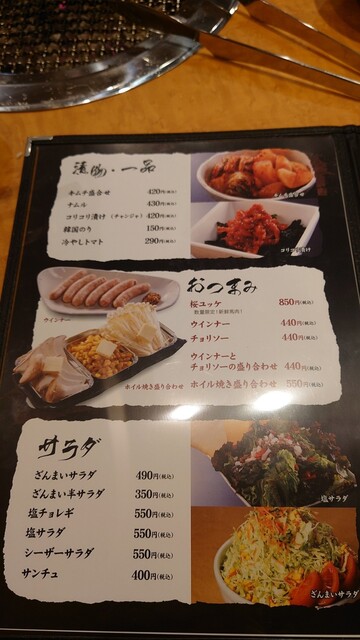 漬物・一品
キムチ盛合せ 420円(税込)
ナムル 430円(税込)
コリコリ漬け (チャンジャ) 420円(税込)
韓国のり 150円(税込)
冷やしトマト 290円(税込)
キムチ盛合せ
コリコリ漬け
おつまみ
桜ユッケ 850円(税込)
数量限定(新鮮馬肉)
ウインナー 440円(税込)
チョリソー 440円(税込)
ウインナーと
チョリソーの盛り合わせ 440円(税込)
ホイル焼き盛り合わせ 550円(税込)
ウインナー
ホイル焼き盛り合わせ
サラダ
ざんまいサラダ 490円(税込)
ざんまい半サラダ 350円(税込)
塩チョレギ 550円(税込)
塩サラダ 550円(税込)
シーザーサラダ 550円(税込)
サンチュ 400円(税込)
塩サラダ
ざんまいサラダ